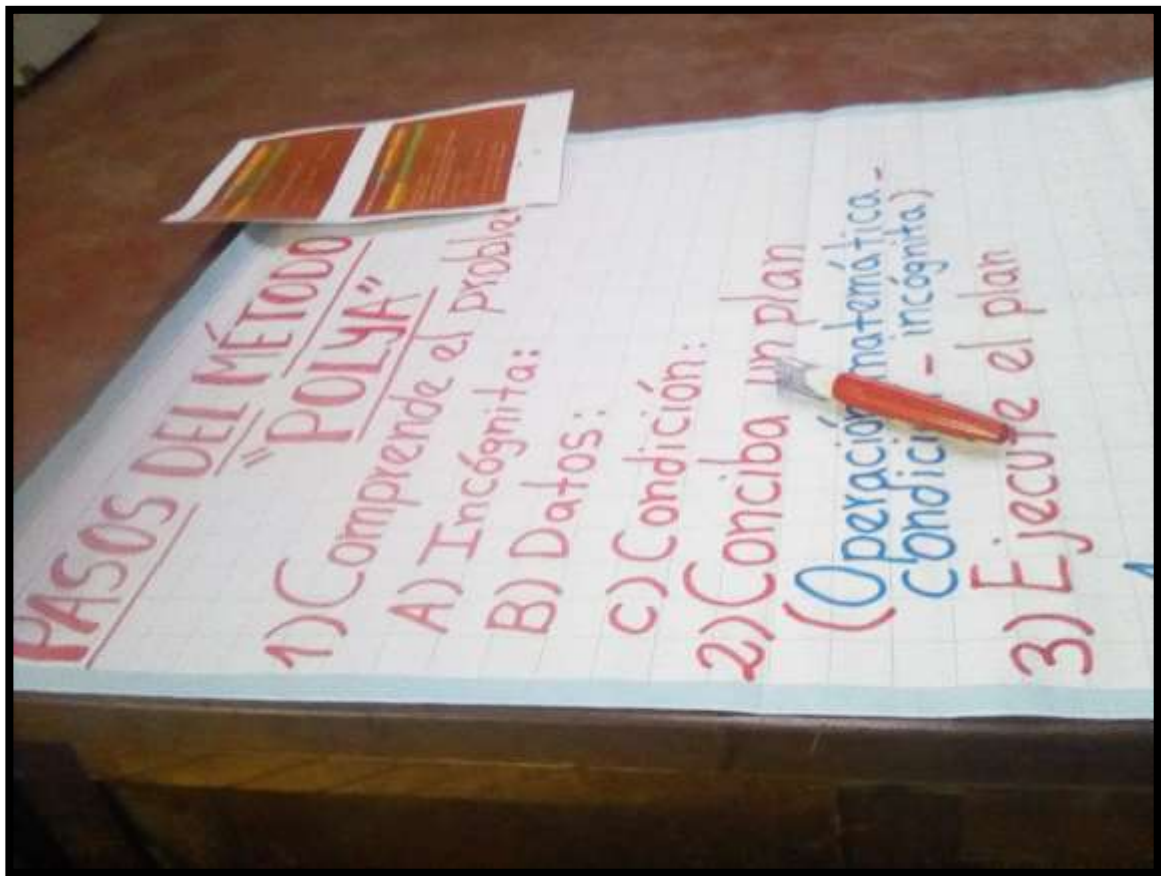 PASOS DEL MÉTODO
"POLYA"
1) Comprende el proble
A) Incógnita:
B) Datos:
C) Condición:
2) Conciba un plan
(Operación matemática -
condici - incógnita)
3) Ejecute el plan